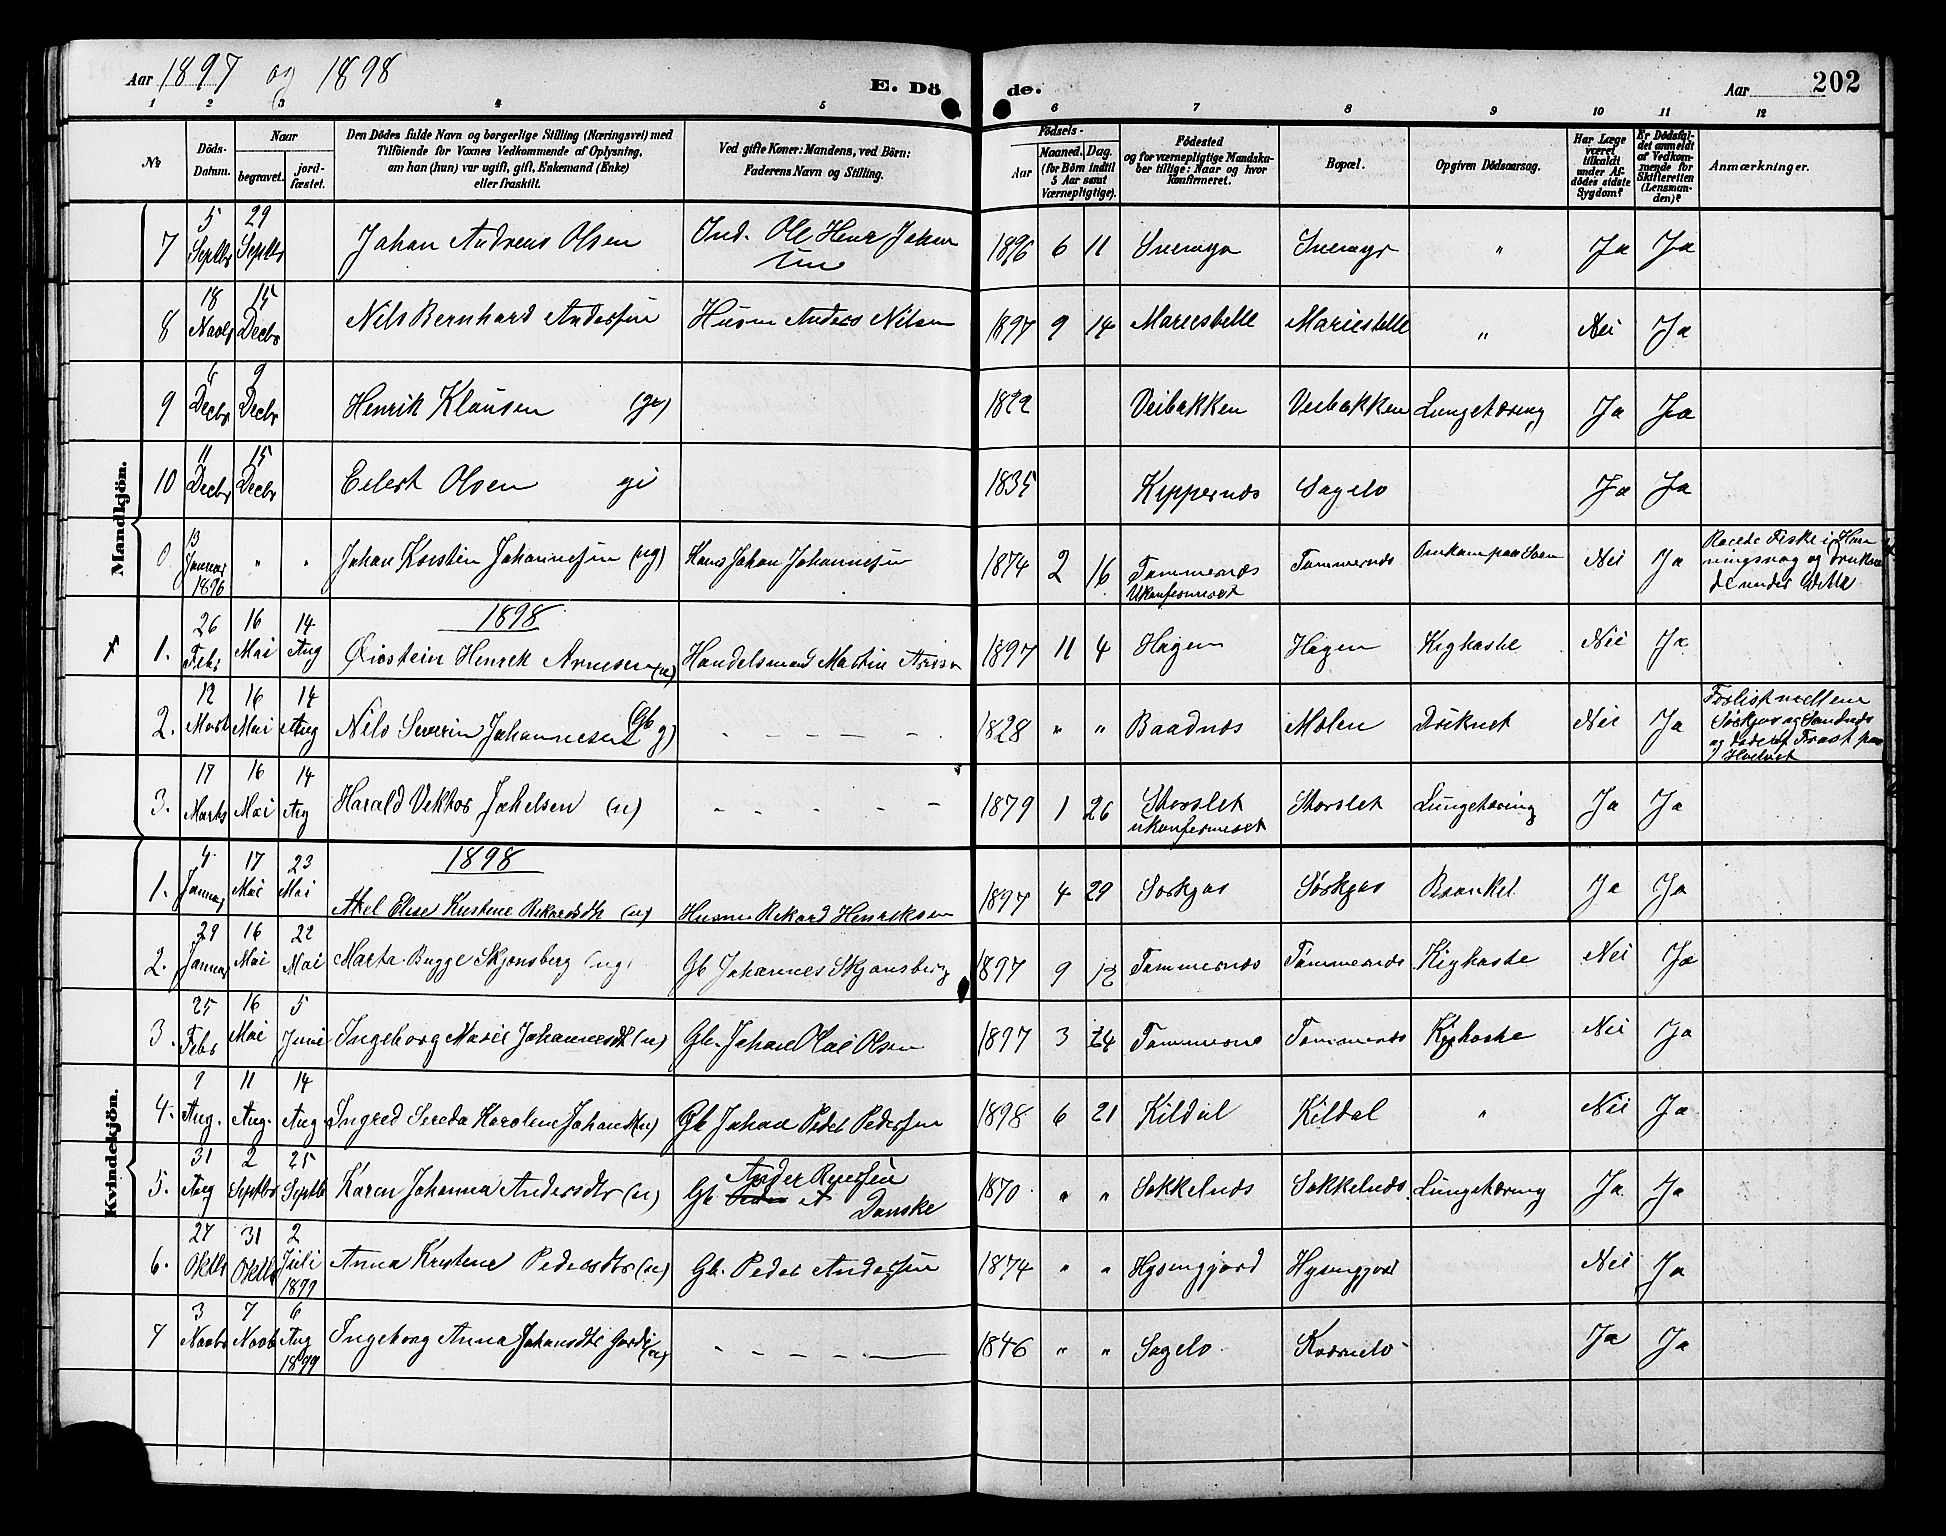 Aar 1897 og 1898
E. Döde.
Aar 202
1 2 3 4 5 6 7 8 9 10 11 12
№
Döds-Datum.
Naar begravet. jordfæstet.
Den Dödes fulde Navn og borgerlige Stilling (Næringsvei) med Tilföiende for Voxnes Vedkommende af Oplysning, om han (hun) var ugift, gift, Enkemand (Enke) eller fraskilt.
Ved gifte Koner: Mandens, ved Börn: Faderens Navn og Stilling.
Födsels-
Aar
Maaned. Dag.
(for Börn indtil 5 Aar samt Værnepligtige).
Födested og for værnepligtige Mandskaber tillige: Naar og hvor konfirmeret.
Bopæl.
Opgiven Dödsaarsag.
Har Læge været tilkaldt under Afdödes sidste Sygdom?
Er Dödsfaldet anmeldt af Vedkommende for Skifteretten (Lensmanden)?
Anmærkninger.
Mandkjön.
7 5 Septbr 29 Septbr Johan Andreas Olsen Ind. Ole Henr Johan 1896 6 11 " Ja Ja
8 18 Novbr 15 Decbr Nils Bernhard Andersen Husm Anders Nilsen 1897 9 14 Mariesbelle Mariesbelle " Nei Ja
9 6 Decbr 9 Decbr Henrik Klausen (gi) 1822 Veibakken Veibakken Lungetæring Ja Ja
10 11 Decbr 15 Decbr Eilert Olsen gi 1835 Kippernæs Sagelv Ja Ja
0 13 Januar 1896 " " Johan Korstin Johannesen (ug) Hans Johan Johannesen 1874 2 16 Tømmernæs Ukonfirmeret Tømmernæs Omkom paa Søen Nei Ja
1898
1. 26 Febr 16 Mai 14 Aug Øivstein Henrik Arnesen (u) Handelsmand Martin 1897 11 4 Hagen Hagen Kighoste Nei Ja
2. 12 Marts 16 Mai 14 Aug Nils Severin Johannesen (Gb g) 1828 " " Baadnæs Molen Druknet Nei Ja Forlist mellem Sørkjos og Sandnæs og døde af Frost paa
3. 17 Marts 16 Mai 14 Aug Harald Vektor Jakelsen (u) 1879 1 26 Storslet ukonfirmeret Storslet Lungetæring Ja Ja
Kvindekjön.
1898
1. 4 Januar 17 Mai 23 Mai Akel Elise Kristine Rikardsdtr (u) Husm Rikard Henriksen 1897 4 29 Sørkjos Sørkjos Ja Ja
2. 29 Januar 16 Mai 22 Mai Marta Bugge Skjønsberg (ug) Gb Johannes Skjønsberg 1897 9 12 Tømmernæs Tømmernæs Kighoste Nei Ja
3. 25 Febr 16 Mai 5 Juni Ingeborg Marie Johannesdtr (u) Gb. Johan Olai Olsen 1897 3 24 Tømmernæs Tømmernæs Kighoste Nei Ja
4. 9 Aug. 11 Aug. 14 Aug Ingred Sereda Karoline (u) Gb Johan Peder Pedersen 1898 6 21 Kildal Kildal " Nei Ja
5. 31 Aug 2 Septbr 25 Septb Karen Johanna Andersdtr (u) Gb. Danske 1870 " " Sokkelnæs Sokkelnæs Lungetæring Ja Ja
6. 27 Oktbr 31 Oktbr 2 Juli 1899 Anna Kristine Pedersdtr (u) Gb. Peder Andersen 1874 " " Nei Ja
7 3 Novbr 7 Novb 6 Aug 1899 Ingeborg Anna Johansdtr (u) 1846 " " Sagelv Ja Ja